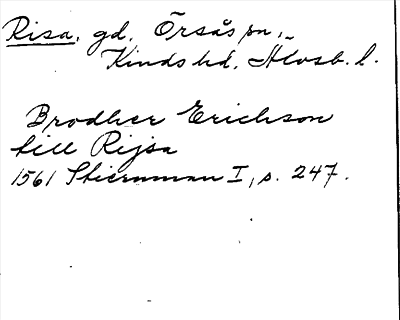 Risa, gd, Örsås sn.,
Kinds hd, Älvsb. l.
Brodher Erichson
till Rijsa
1561 Stiernman I, s. 247.